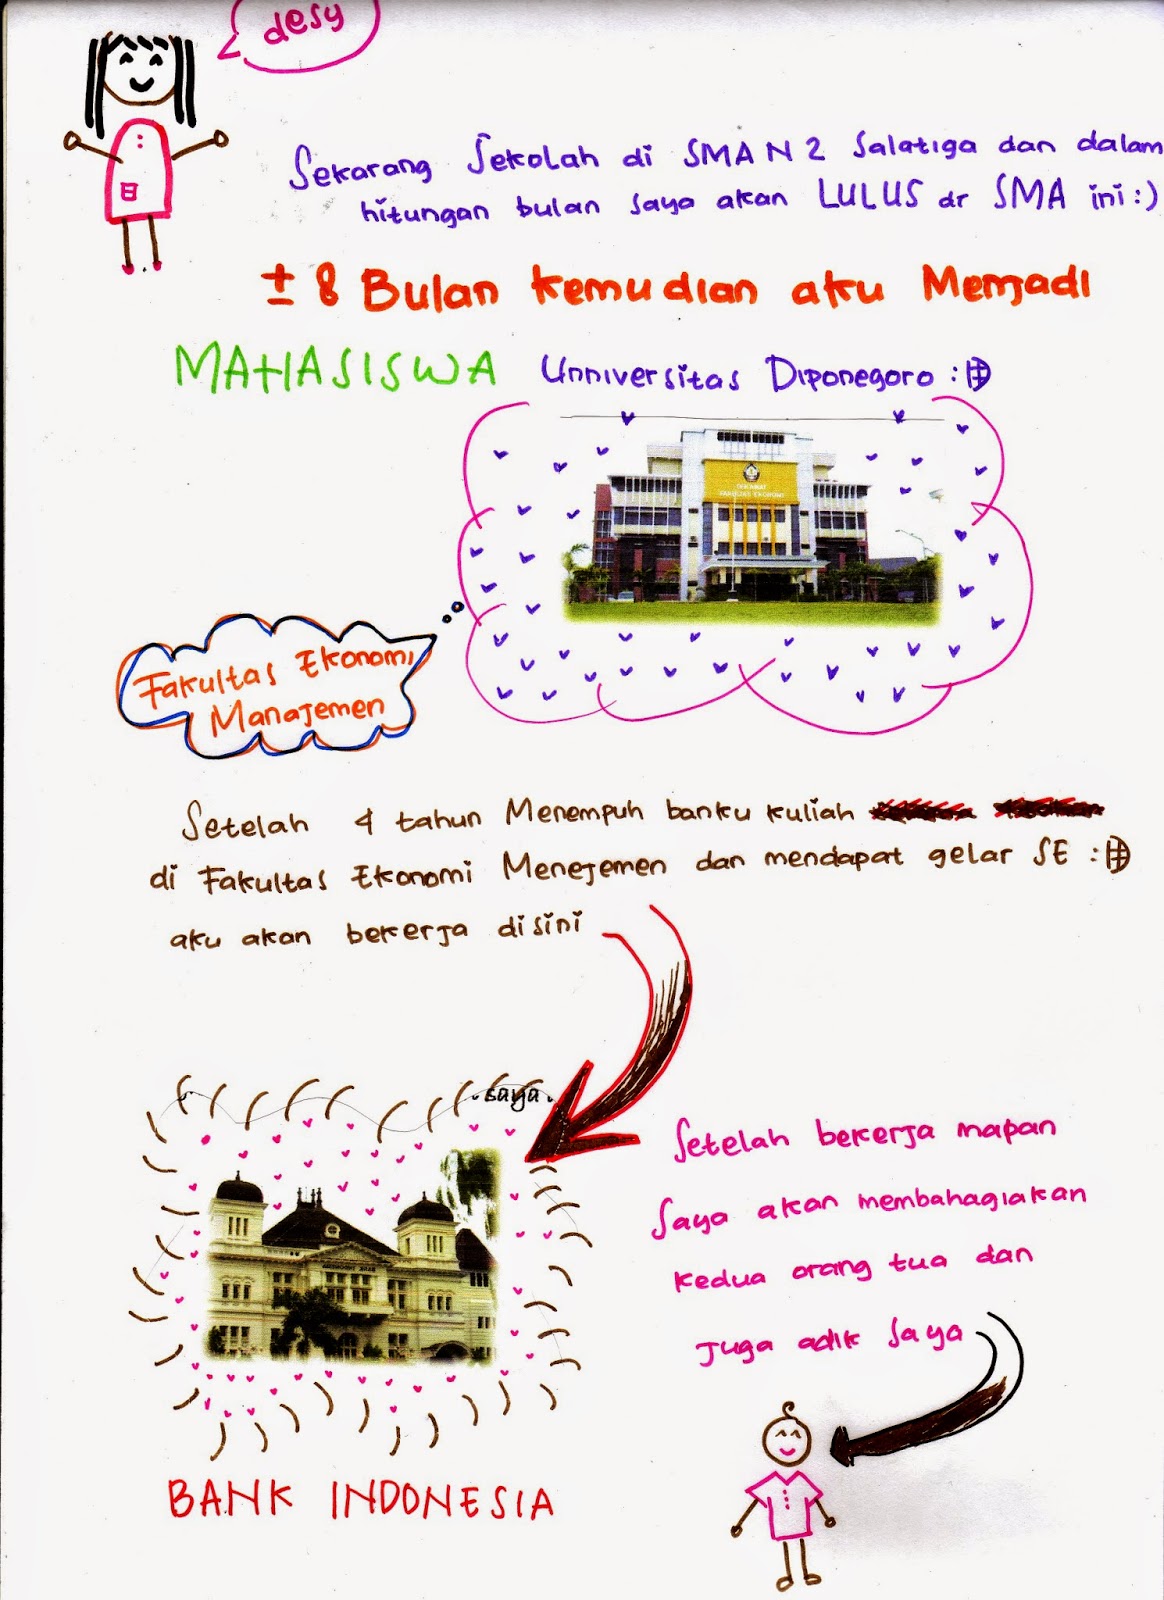 desy
Sekarang Sekolah di SMA N 2 Salatiga dan dalam
hitungan bulan saya akan LULUS dr SMA ini :)
± 8 Bulan kemudian aku Menjadi
MAHASISWA Unniversitas Diponegoro :D
DEKANAT
FAKULTAS EKONOMI
Fakultas Ekonomi
Manajemen
Setelah 4 tahun Menempuh banku kuliah
di Fakultas Ekonomi Menejemen dan mendapat gelar SE :D
aku akan bekerja disini
saya
Setelah bekerja mapan
saya akan membahagiakan
kedua orang tua dan
juga adik saya
BANK INDONESIA